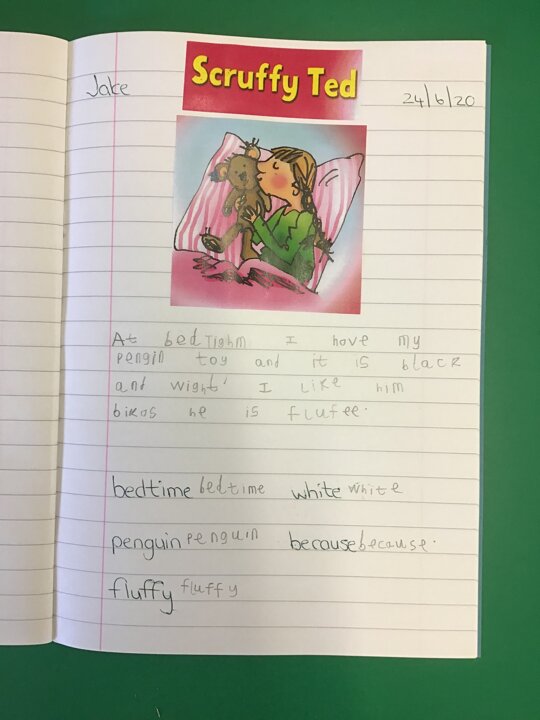 Scruffy Ted
Jake 24/6/20
At bedtighm I have my
pengin toy and it is black
and wight I like him
bikos he is flufee.
bedtime bedtime white white
penguin penguin because because.
fluffy fluffy